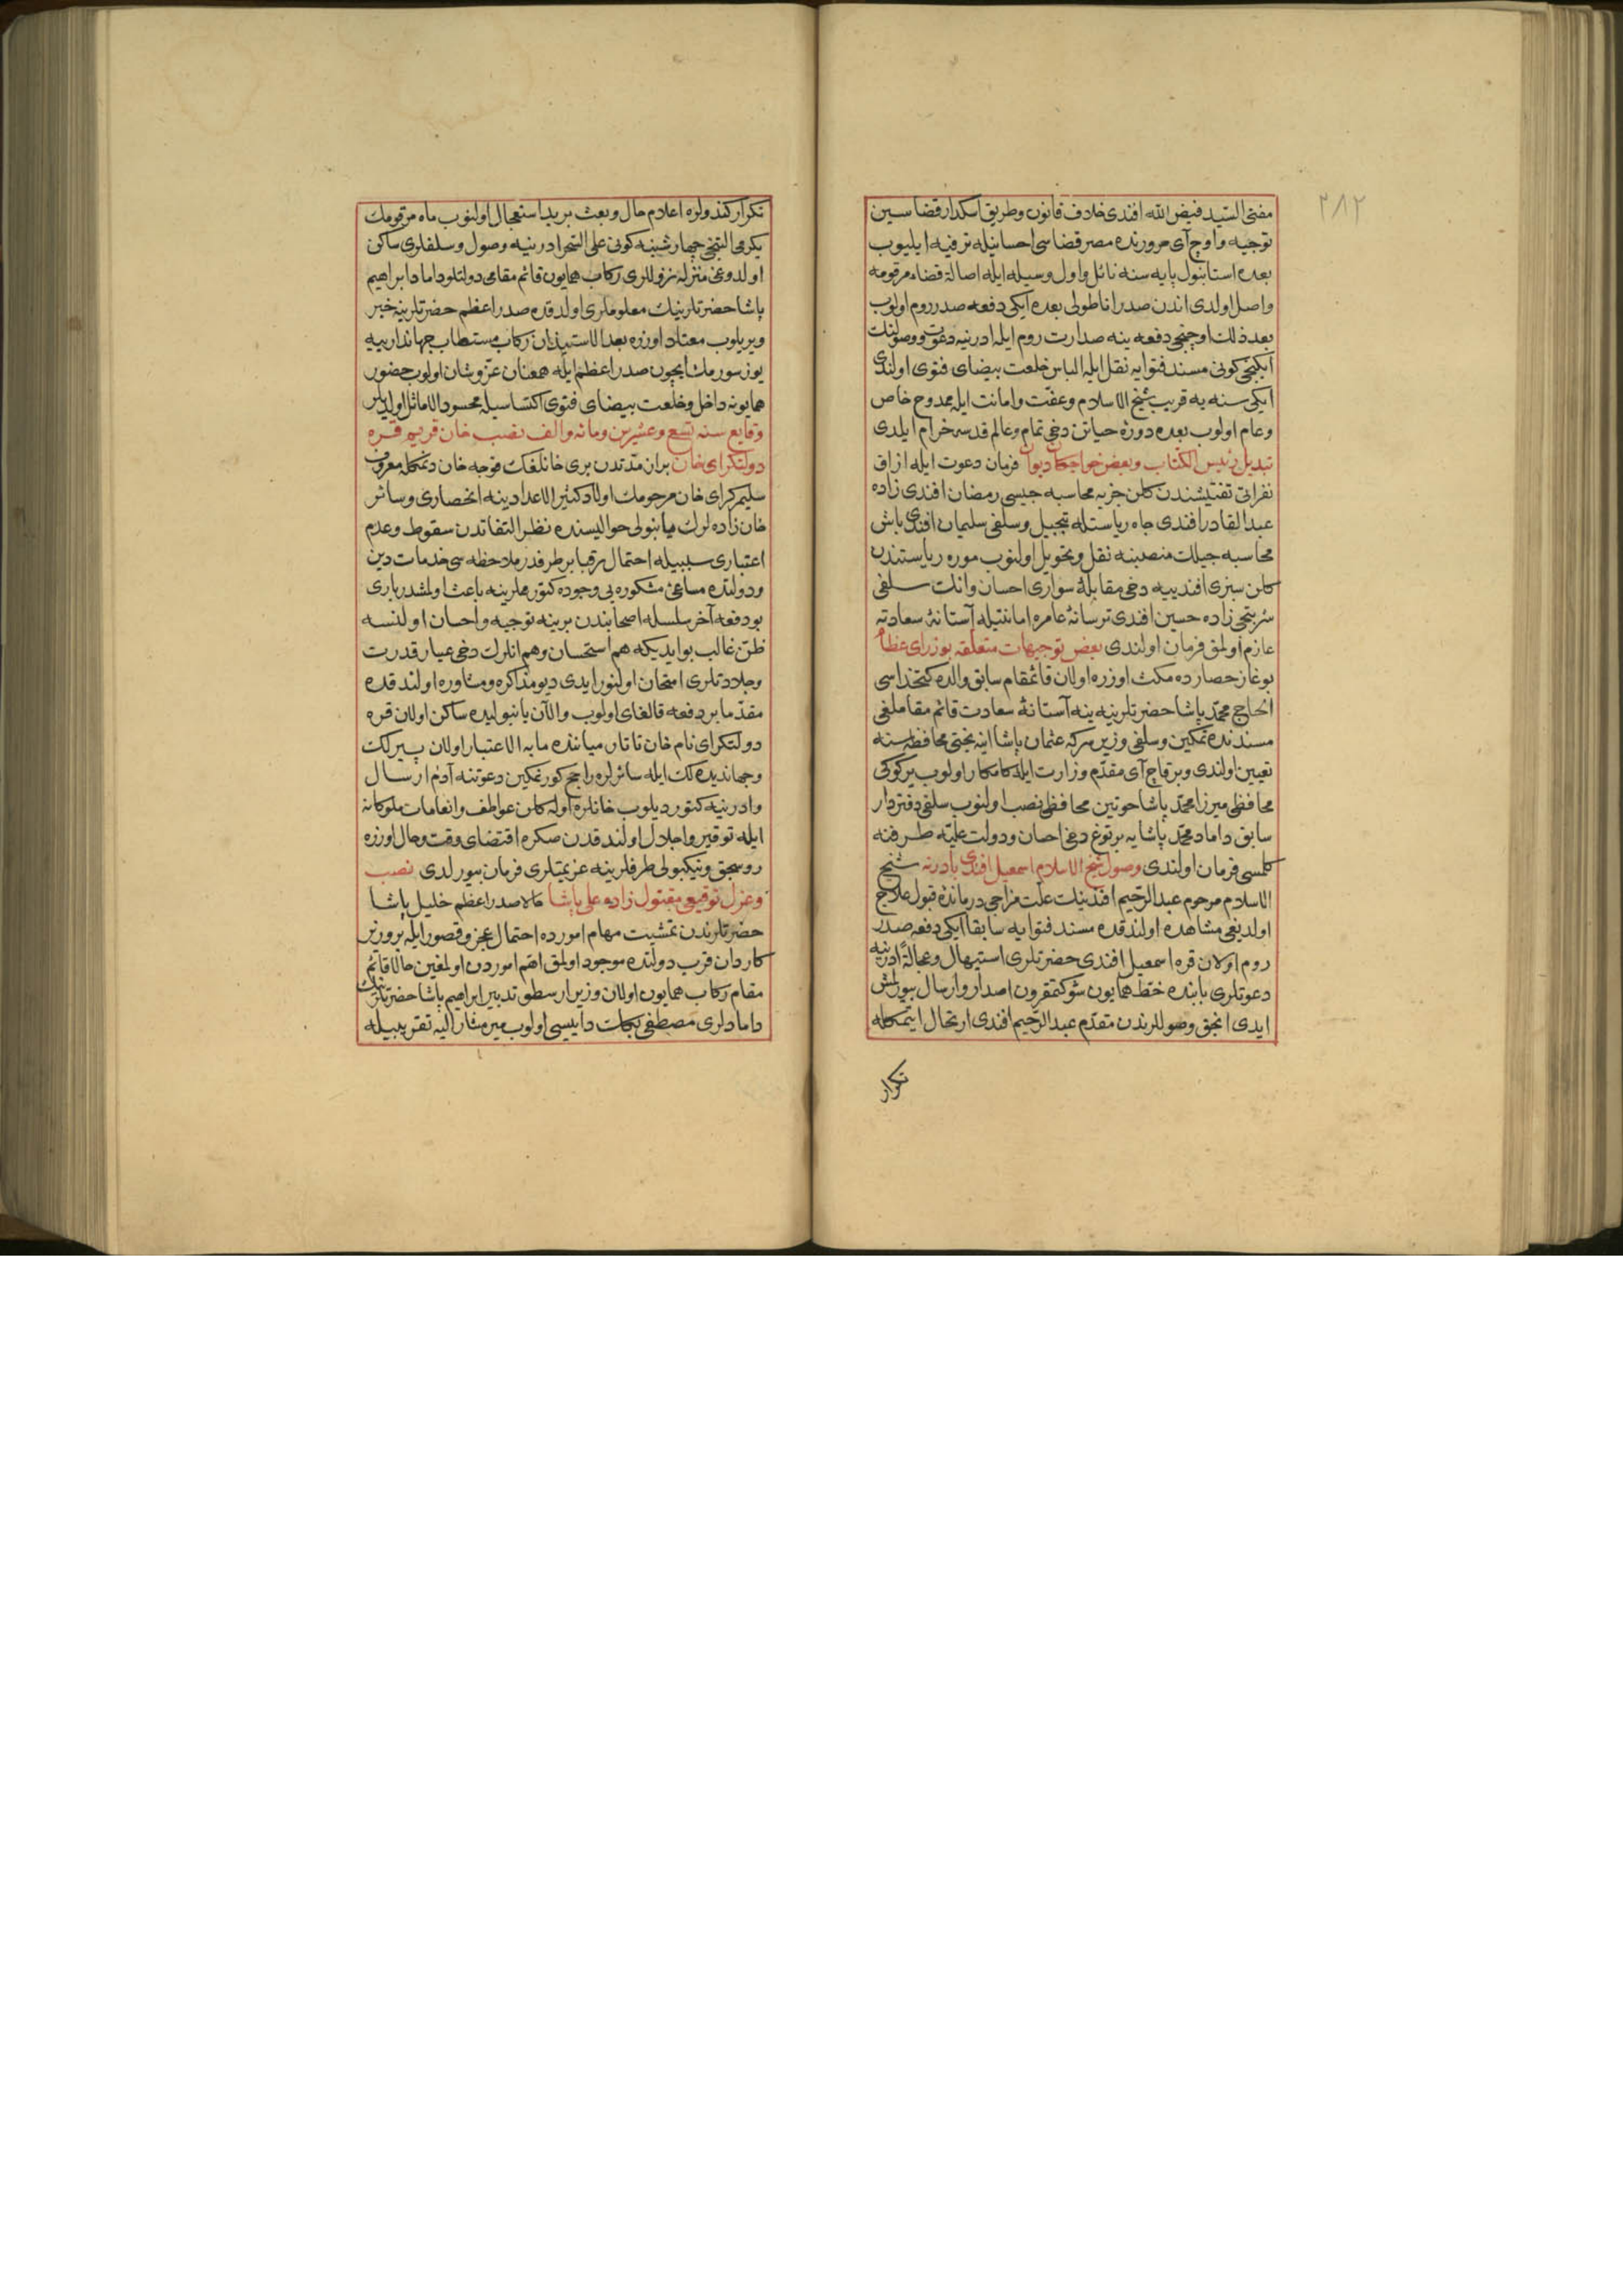 ٢٨٢
مفتی السید فیض الله افندی خلاف قانون وطریق اسکدار قضاسین
توجیه واوچ آی مرورنده مصر قضاسی احسانیله ترفیه ایلیوب
بعده استانبول پایه سنه نائل واول وسیله ایله اصالة قضاء مرقومه
واصل اولدی اندن صدر اناطولی بعده ایکی دفعه صدر روم اولوب
بعد ذلك اوچنجی دفعه ینه صدارت روم ایله ادرنیه دعوت ووصولنك
ایکنجی کونی مسند فتوایه نقل ایله الباس خلعت بیضای فتوی اولندی
ایکی سنه یه قریب شیخ الاسلام وعفت وامانت ایله ممدوح خاص
وعام اولوب بعده دوره حیاتن دخی تمام وعالم قدسه خرام ایلدی
تبدیل رئیس الکتاب وبعض خواجکان دیوان فرمان دعوت ایله ازاق
نفراتی تفتیشندن کلن جزیه محاسبه جیسی رمضان افندی زاده
عبد القادر افندی جاه ریاستله تبجیل وسلفی سلیمان افندی باش
محاسبه جیلك منصبنه نقل وتحویل اولنوب موره ریاستندن
کلن سبزی افندییه دخی مقابلهٔ سواری احسان وانك سلفی
شربتجی زاده حسین افندی ترسانهٔ عامره امانتیله آستانهٔ سعادته
عازم اولمق فرمان اولندی بعض توجیهات متعلقه بوزرای عظام
بوغاز حصارده مکث اوزره اولان قائمقام سابق والده کتخداسی
الحاج محمد پاشا حضرتلرینه ینه آستانهٔ سعادت قائم مقاملغی
مسندنده تمکین وسلفی وزیر سرکه عثمان پاشا اینه بختی محافظه سنه
تعیین اولندی وبر قاچ آی مقدم وزارت ایله کامکار اولوب یرکوکی
محافظی میرزا محمد پاشا خوتین محافظی نصب اولنوب سلفی دفتردار
سابق داماد محمد پاشایه بر توغ دخی احسان ودولت علیه طرفنه
کلمسی فرمان اولندی وصول شیخ الاسلام اسمعیل افندی بادرنه شیخ
الاسلام مرحوم عبد الرحیم افندینك علت مزاجی درمانده قبول علاج
اولدیغی مشاهده اولندقده مسند فتوایه سابقا ایکی دفعه صدر
روم اولان قره اسمعیل افندی حضرتلری استیهال وعجالة ادرنیه
دعوتلری بابنده خط همایون شوکتمقرون اصدار وارسال بیورلمش
ایدی انجق وصوللرندن مقدم عبد الرحیم افندی ارتحال ایتمکله
تکرار
تکرار کندولره اعلام حال وبعث برید استعجال اولنوب ماه مرقومك
یکرمی التنجی چهارشنبه کونی علی السحر ادرنیه وصول وسلفلری ساکن
اولدوغی منزله نزوللری رکاب همایون قائم مقامی دولتلو داماد ابراهیم
پاشا حضرتلرینك معلوملری اولدقده صدر اعظم حضرتلرینه خبر
ویریلوب معتاد اوزره بعد الاستیذان رکاب مستطاب جهاندارییه
یوز سورمك ایچون صدر اعظم ایله همعنان عز وشان اولوب حضور
همایونه داخل وخلعت بیضای فتوی اکتساسیله محسود الاماثل اولدیلر
وقایع سنه تسع وعشرین ومائه والف نصب خان قریم قره
دولتکرای خان بر از مدتدن بری خانلغك قوجه خان دیمکله معروف
سلیم کرای خان مرحومك اولاد کثیر الاعدادینه انحصاری وسائر
خان زاده لرك یانبولی حوالیسنده نظر التفاتدن سقوط وعدم
اعتباری سببیله احتمال ترقبا بر طرفدر ملاحظه سی خدمات دین
ودولتده مساعی مشکوره یی وجوده کتورملرینه باعث اولمشدر باری
بو دفعه آخر سلسله اصحابندن برینه توجیه واحسان اولنسه
ظن غالب بو ایدیکه هم استحسان وهم انلرك دخی عیار قدرت
وجلادتلری امتحان اولنور ایدی دیو مذاکره ومشاوره اولندقده
مقدما بر دفعه قالغای اولوب والآن یانبولیده ساکن اولان قره
دولتکرای نام خان تاتار میاننده مابه الاعتبار اولان پیرلك
وجهاندیده لك ایله سائرلره راجح کورنمکین دعوتنه آدم ارسال
وادرنیه کتوردیلوب خانلره اوله کلن عواطف وانعامات ملوکانه
ایله توقیر واجلال اولندقدن صکره اقتضای وقت وحال اوزره
روسجق ونیکبولی طرفلرینه عزیمتلری فرمان بیورلدی نصب
وعزل توقیعی مقتول زاده علی پاشا حالا صدر اعظم خلیل پاشا
حضرتلرندن تمشیت مهام امورده احتمال عجز وقصور ایله بر وزیر
کاردان قرب دولتده موجود اولمق اهم اموردن اولمغین حالا قائم
مقام رکاب همایون اولان وزیر ارسطو تدبیر ابراهیم پاشا حضرتلرینك
دامادلری مصطفی بکك داییسی اولوب میر مشار الیه تقریبیله